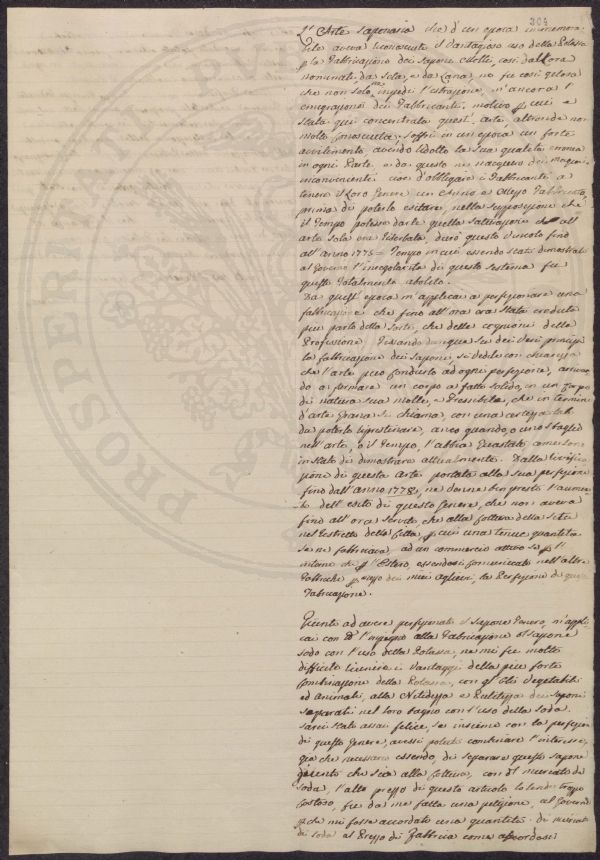 304
L'Arte Saponaria che d'un epoca immemora-
bile aveva riconosciuto il Vantagioso uso della Potassa
p la Fabbricazione dei Sapone eletti, così dall'ora
nominati da Seta, e da Lana, ne fu così gelosa
che non solo impedì l'estrazione, m'ancora l'
emigrazione dei Fabbricanti, motivo p cui è
stata qui concentrata quest'arte, altronde no
molto conosciuta. Soffrì in un epoca un forte
avvilimento avendo ridotto la sua qualità erronea
in ogni Parte e da questo ne nacquero dei magiori
inconvenienti cioè d'obbligare i Fabbricanti a
tenere il loro Genere un Anno e Mezzo Fabbricato
prima di poterlo esitare, nella supposizione che
il tempo potesse darle quella saturazione che all'
arte sola era riserbata, durò questo Vincolo fino
all'anno 1775= Tempo in cui essendo stato dimostrato
al Governo l'irregolarità di questo sistema fu
questo Totalmente abolito.
Da quest'epoca m'applicai a perfezionare una
fabbricazione che fino all'ora era stata creduta
più parto della Sorte, che delle cognizioni della
Professione. Fissando dunque su dei Veri principj
la fabbricazione dei Saponi, si vedde con chiarezza
che l'arte può condurlo ad ogni perfezione, arrivan-
do a formare un corpo affatto solido, in un Corpo
di natura sua molle, e Pressibile, che in termine
d'arte Grana si chiama, con una certezza tale
da poterlo ripristinare, anco quando, o uno sbaglio
nell'arte, o il Tempo, l'abbia Guastato, come sono
in stato di dimostrare attualmente. Dalla
zione di questa Arte portata alla sua perfezione
fino dall'anno 1778, ne venne ben presto l'aumen-
to dell'esito di questo Genere, che non aveva
fino all'ora servito che alla Cottura della Seta
nel Distretto della Città, p cui una tenue quantità
se ne fabbricava, ad un commercio attivo sì p l'
interno che p l'Estero, essendosi comunicata nell'altre
Fabbriche p mezzo dei miei aglievi, la Perfezione di questa
Fabricazione.
Giunto ad avere perfezionato il Sapone Tenero, m'appli-
cai con l'impegno alla Fabricazione del Sapone
Sodo con l'uso della Potassa, ne mi fu molto
difficile riunire i Vantaggi della più forte
Combinazione della Potassa, con gl'Olj Vegetabili
ed Animali, alla Nitidezza e Pulitezza dei Saponi
Separati nel loro bagno con l'uso della Soda.
Sarei stato assai felice, se insieme con la perfezione
di questo Genere, avessi potuto combinare l'interesse,
già che necessario essendo, di separare questo Sapone
giunto che sia alla Cottura, con il muriato di
Soda, l'alto prezzo di questo articolo lo rende troppo
Costoso, fu da me fatta una petizione, al Governo
p che mi fosse accordato una quantità di muriato
di Soda al Prezzo di Fabbrica come accordasi